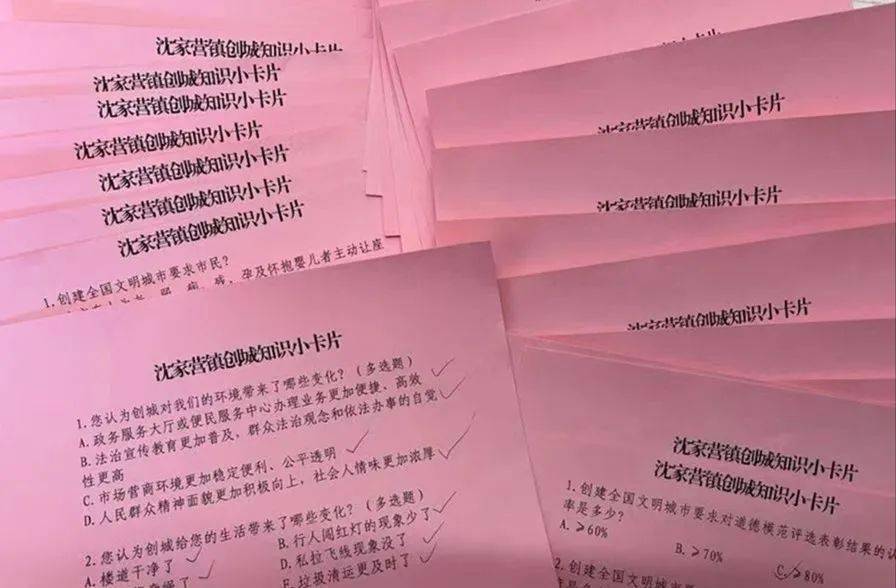 沈家营镇创城知识小卡片
沈家营镇创城知识小卡片
沈家营镇创城知识小卡片
沈家营镇创城知识小卡片
沈家营镇创城知识小卡片
沈家营镇创城知识小卡片
沈家营镇创城知识小卡片
1.创建全国文明城市要求市民?
孕及怀抱婴儿者主动让座
沈家营镇创城知识小卡片
1.您认为创城对我们的环境带来了哪些变化?(多选题)
A.政务服务大厅或便民服务中心办理业务更加便捷、高效
B.法治宣传教育更加普及,群众法治观念和依法办事的自觉
性更高
C.市场营商环境更加稳定便利、公平透明
D.人民群众精神面貌更加积极向上,社会人情味更加浓厚
2.您认为创城给您的生活带来了哪些变化?(多选题)
A.楼道干净了
B.行人闯红灯的现象少了
D.私拉飞线现象没了
E.垃圾清运更及时了
沈家营镇创城知识小卡片
沈家营镇创城知识小卡片
沈家营镇创城知识小卡片
沈家营镇创城知识小卡片
沈家营镇创城知识小卡片
1.创建全国文明城市要求对道德模范评选表彰结果的认
率是多少?
A.≥60%
B.≥70%
C.≥80%
2.创建全国文明城市要求